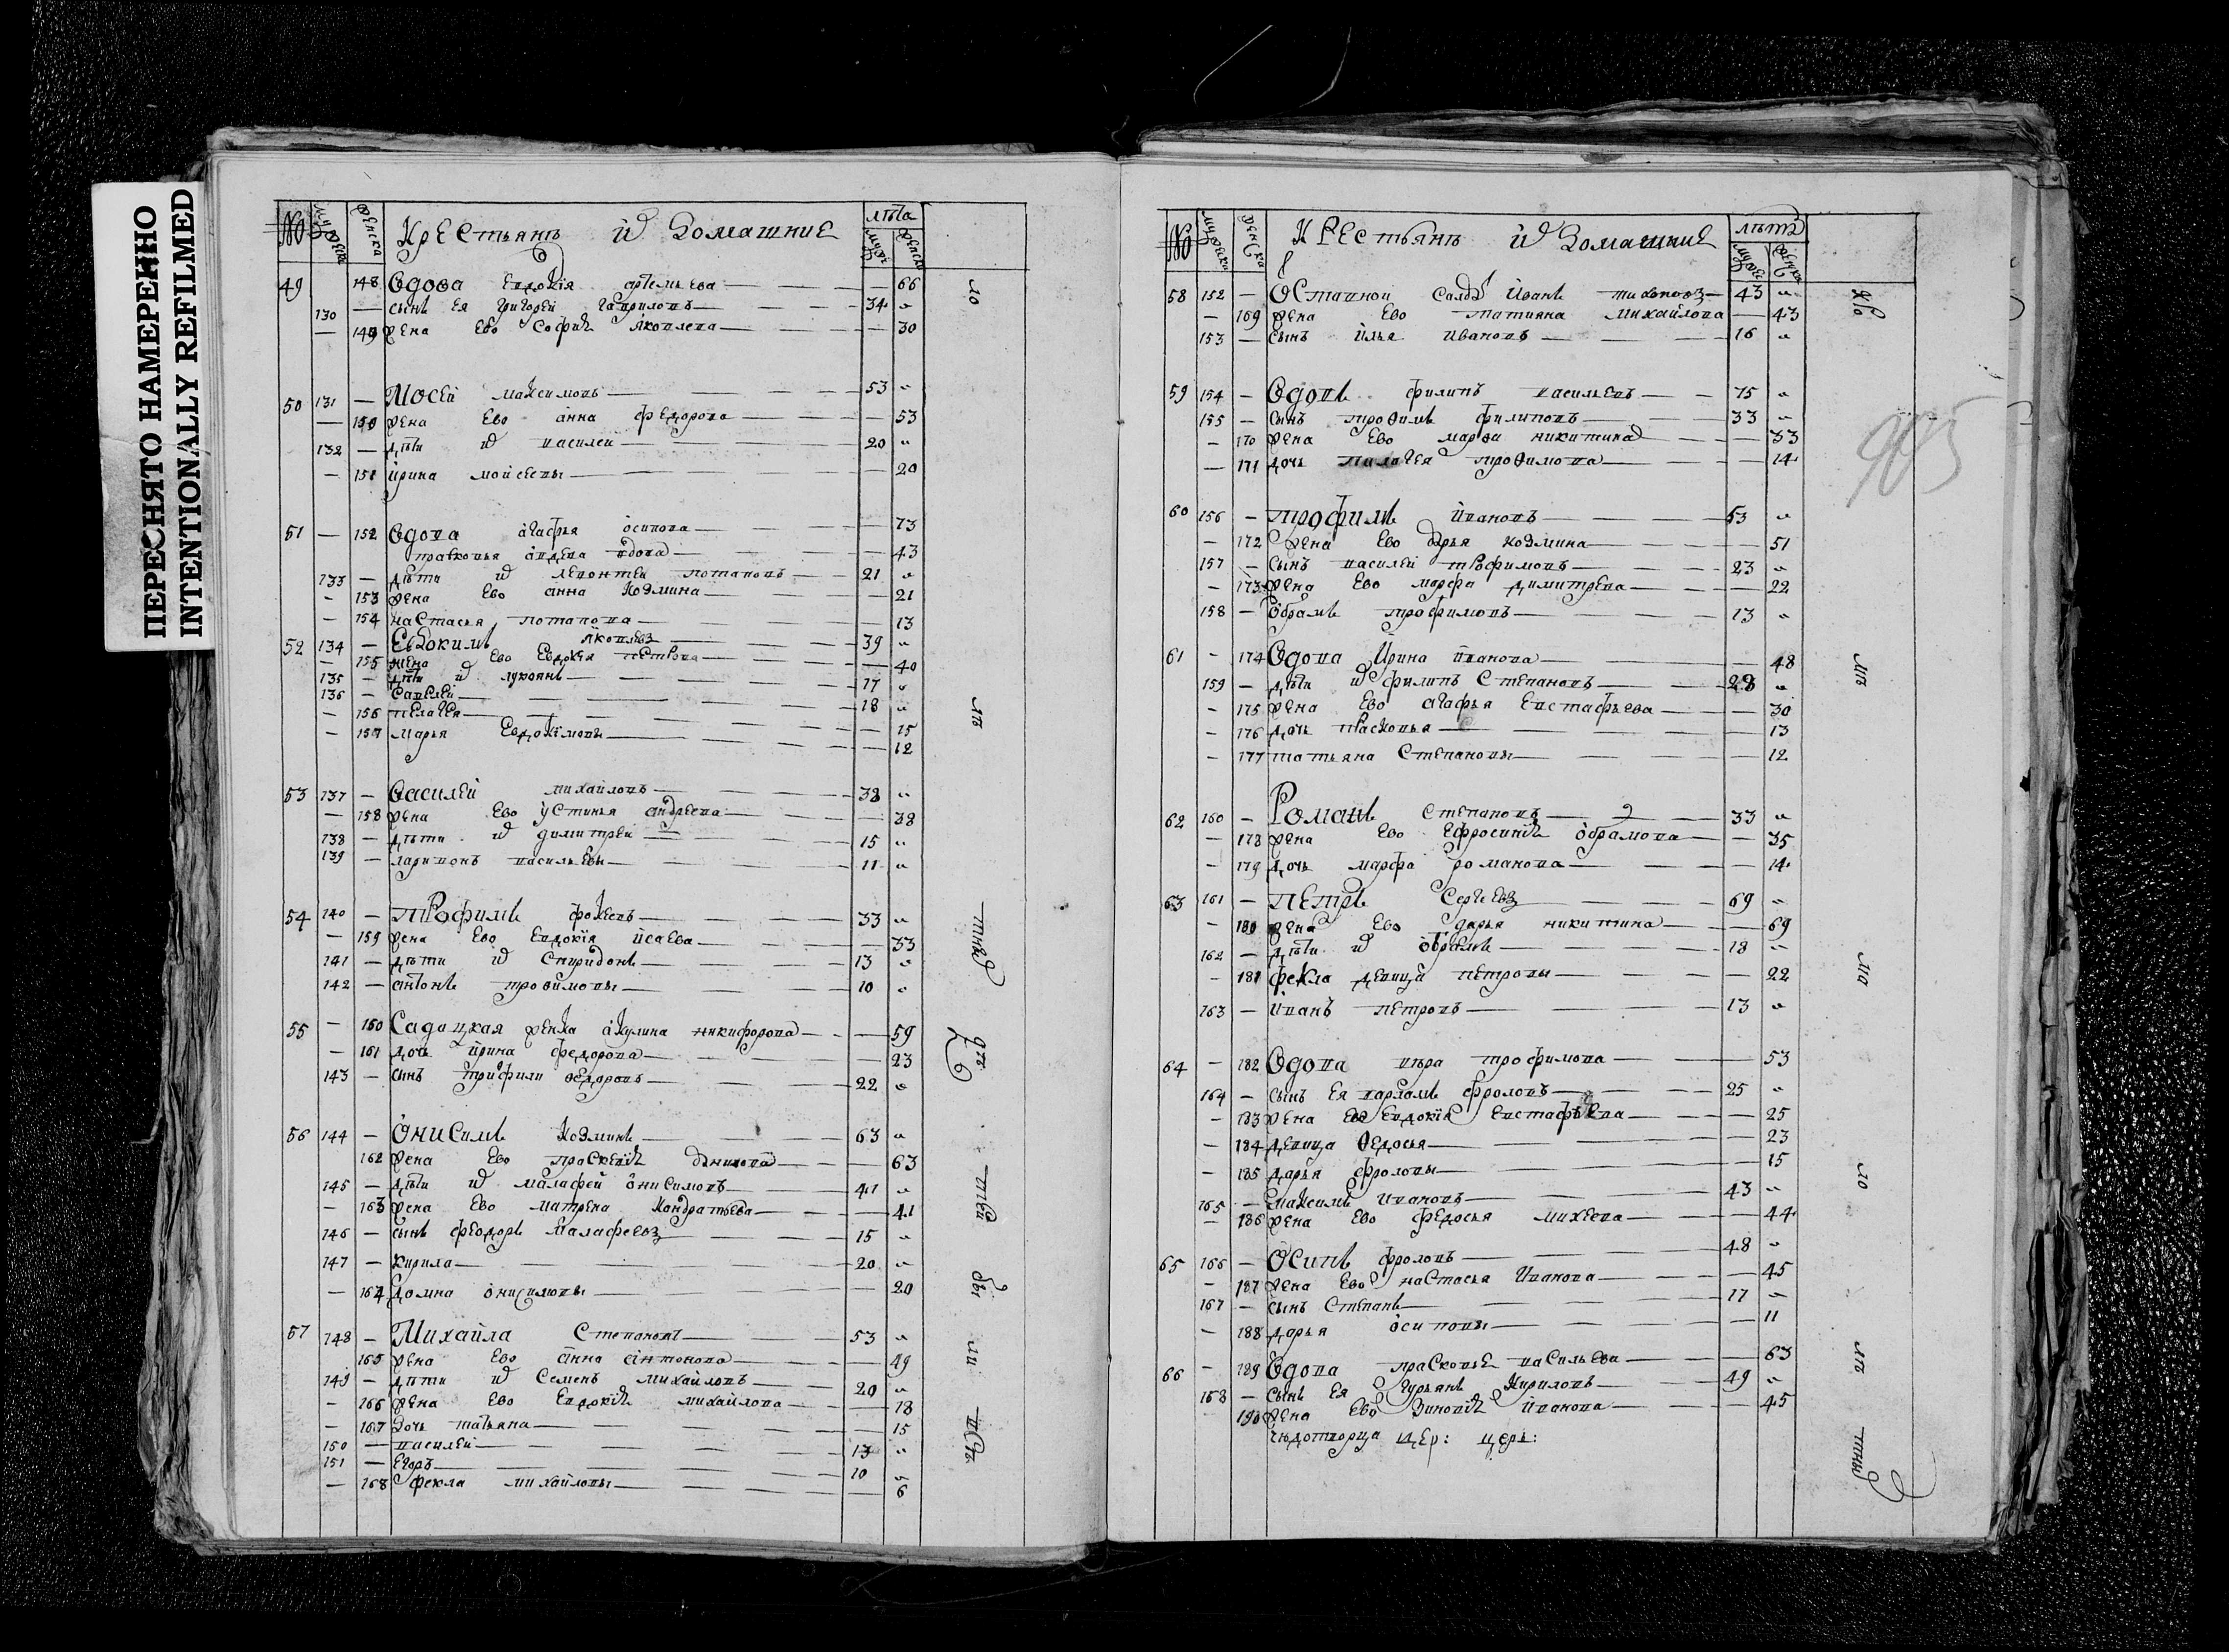 ПЕРЕСНЯТО НАМЕРЕННО
INTENTIONALLY REFILMED
№ мужеска женска Крестьянъ и домашние лѣта мужес женска
49 148 Вдова Евдокія артемьева — 66
130 — сынъ ея григорей гавриловъ — 34 "
— 149 жена ево софия яковлева — 30
50 131 — Мосей максимовъ — 53 "
— 150 жена ево анна федорова — 53
132 — дѣти и василей — 20 "
— 151 ирина мойсеевы — 20
51 — 152 Вдова агафья осипова — 73
прасковья вдова — 43
133 — дѣти и леонтей потаповъ — 21 "
— 153 жена ево анна козмина — 21
— 154 настасья потапова — 13
52 134 — Евдокимъ яковлевъ — 39 "
— 155 жена ево Евдокія петрова — 40
135 — дѣти и лукоянъ — 17 "
136 — савелей — 18 "
— 156 пелагея — 15
— 157 марья Евдокимовы — 12
53 137 — Василей михайловъ — 38 "
— 158 жена ево устинья андреева — 38
138 — дѣти и димитрей — 15 "
139 — ларионъ васильевы — 11 "
54 140 — Трофимъ — 33 "
— 159 жена ево Евдокія исаева — 33
141 — дѣти и спиридонъ — 13 "
142 — антонъ трофимовы — 10 "
55 — 160 Салдацкая женка акулина никифорова — 59
— 161 дочь ирина федорова — 23
143 — сынъ трифили ѳедоровъ — 22 "
56 144 — Онисимъ козминъ — 63 "
162 жена ево праскевия данилова — 63
145 — дѣти и малафей онисимовъ — 41 "
— 163 жена ево матрена кондратьева — 41
146 — сынъ феодоръ малафеевъ — 15 "
147 — кирила — 20 "
— 164 домна онисимовы — 20
57 148 — Михайла Степановъ — 53 "
165 жена ево анна антонова — 49
149 — дѣти и Семенъ михайловъ — 20 "
— 166 жена ево Евдокия михайлова — 18
— 167 дочь татьяна — 15
150 — василей — 13 "
151 — Егоръ — 10 "
— 168 фекла михайловы — 6
№ мужеска женска Крестьянъ и домашние лѣта мужес женска
905
58 152 — Оставной салда Иванъ тихоновъ — 43 "
— 169 жена ево татияна михайлова — 43
153 — сынъ илья ивановъ — 16 "
59 154 — Вдовъ филипъ васильевъ — 75 "
155 — сынъ троѳимъ филиповъ — 33 "
— 170 жена ево марѳа никитина — 33
— 171 дочь пилагея троѳимова — 14
60 156 — трофимъ ивановъ — 53 "
— 172 жена ево дарья козмина — 51
157 — сынъ василей трофимовъ — 23 "
— 173 жена ево марфа димитрева — 22
158 — обрамъ трофимовъ — 13 "
61 — 174 Вдова Ирина иванова — 48
159 — дѣти и филипъ Степановъ — 28 "
— 175 жена ево агафья Евстафьева — 30
— 176 дочь прасковья — 13
— 177 татьяна Степановы — 12
62 160 — Романъ степановъ — 33 "
— 178 жена ево Ефросиния обрамова — 35
— 179 дочь марфа романова — 14
63 161 — петръ Сергеевъ — 69 "
— 180 жена ево дарья никитина — 69
162 — дѣти и обрамъ — 18 "
— 181 фекла девица петровы — 22
163 — иванъ петровъ — 13 "
64 — 182 Вдова вѣра трофимова — 53
164 — сынъ ея варламъ фроловъ — 25 "
— 183 жена ево Евдокія Евстафьева — 25
— 184 девица ѳедосья — 23
— 185 дарья фроловы — 15
165 — максимъ ивановъ — 43 "
— 186 жена ево федосья михеева — 44
65 166 — Осипъ фроловъ — 48 "
— 187 жена ево настасья Иванова — 45
167 — сынъ Степанъ — 17 "
— 188 дарья осиповы — 11
66 — 189 Вдова прасковье васильева — 63
168 — сынъ ея гурьянъ Кириловъ — 49 "
190 жена ево Зиновия иванова — 45
чюдотворца цер: церк: